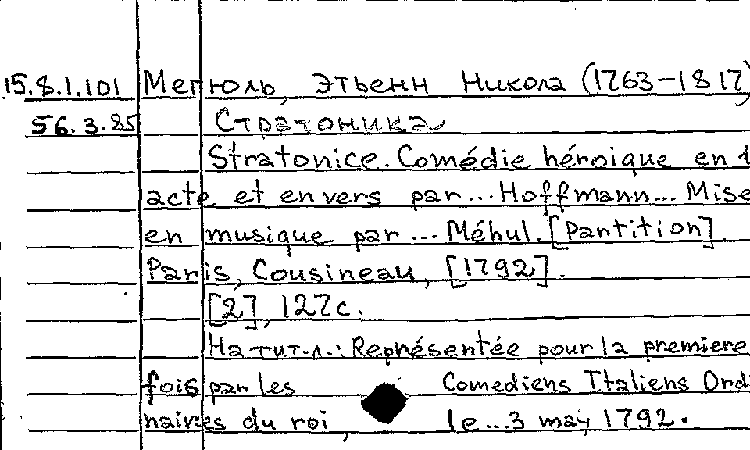 15.8.1.101 Мегюль, Этьенн Никола (1763-1817)
56.3.85 Стратоника
Stratonice. Comédie héroique en 1
acte et en vers par... Hoffmann... Mise
en musique par... Méhul. [Partition].
Paris, Cousineau, [1792].
[2], 127 с.
На тит. л.: Représentée pour la premiere
fois par les Comediens Italiens Ordi
naires du roi, le...3 may 1792.